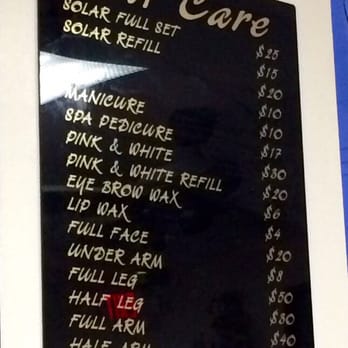 Care
SOLAR FULL SET $25
SOLAR REFILL $15
$20
$10
MANICURE $10
SPA PEDICURE $17
PINK & WHITE $30
PINK & WHITE REFILL $20
EYE BROW WAX $6
LIP WAX $4
FULL FACE $20
UNDER ARM $8
FULL LEG $50
HALF LEG $30
FULL ARM $40
HALF ARM